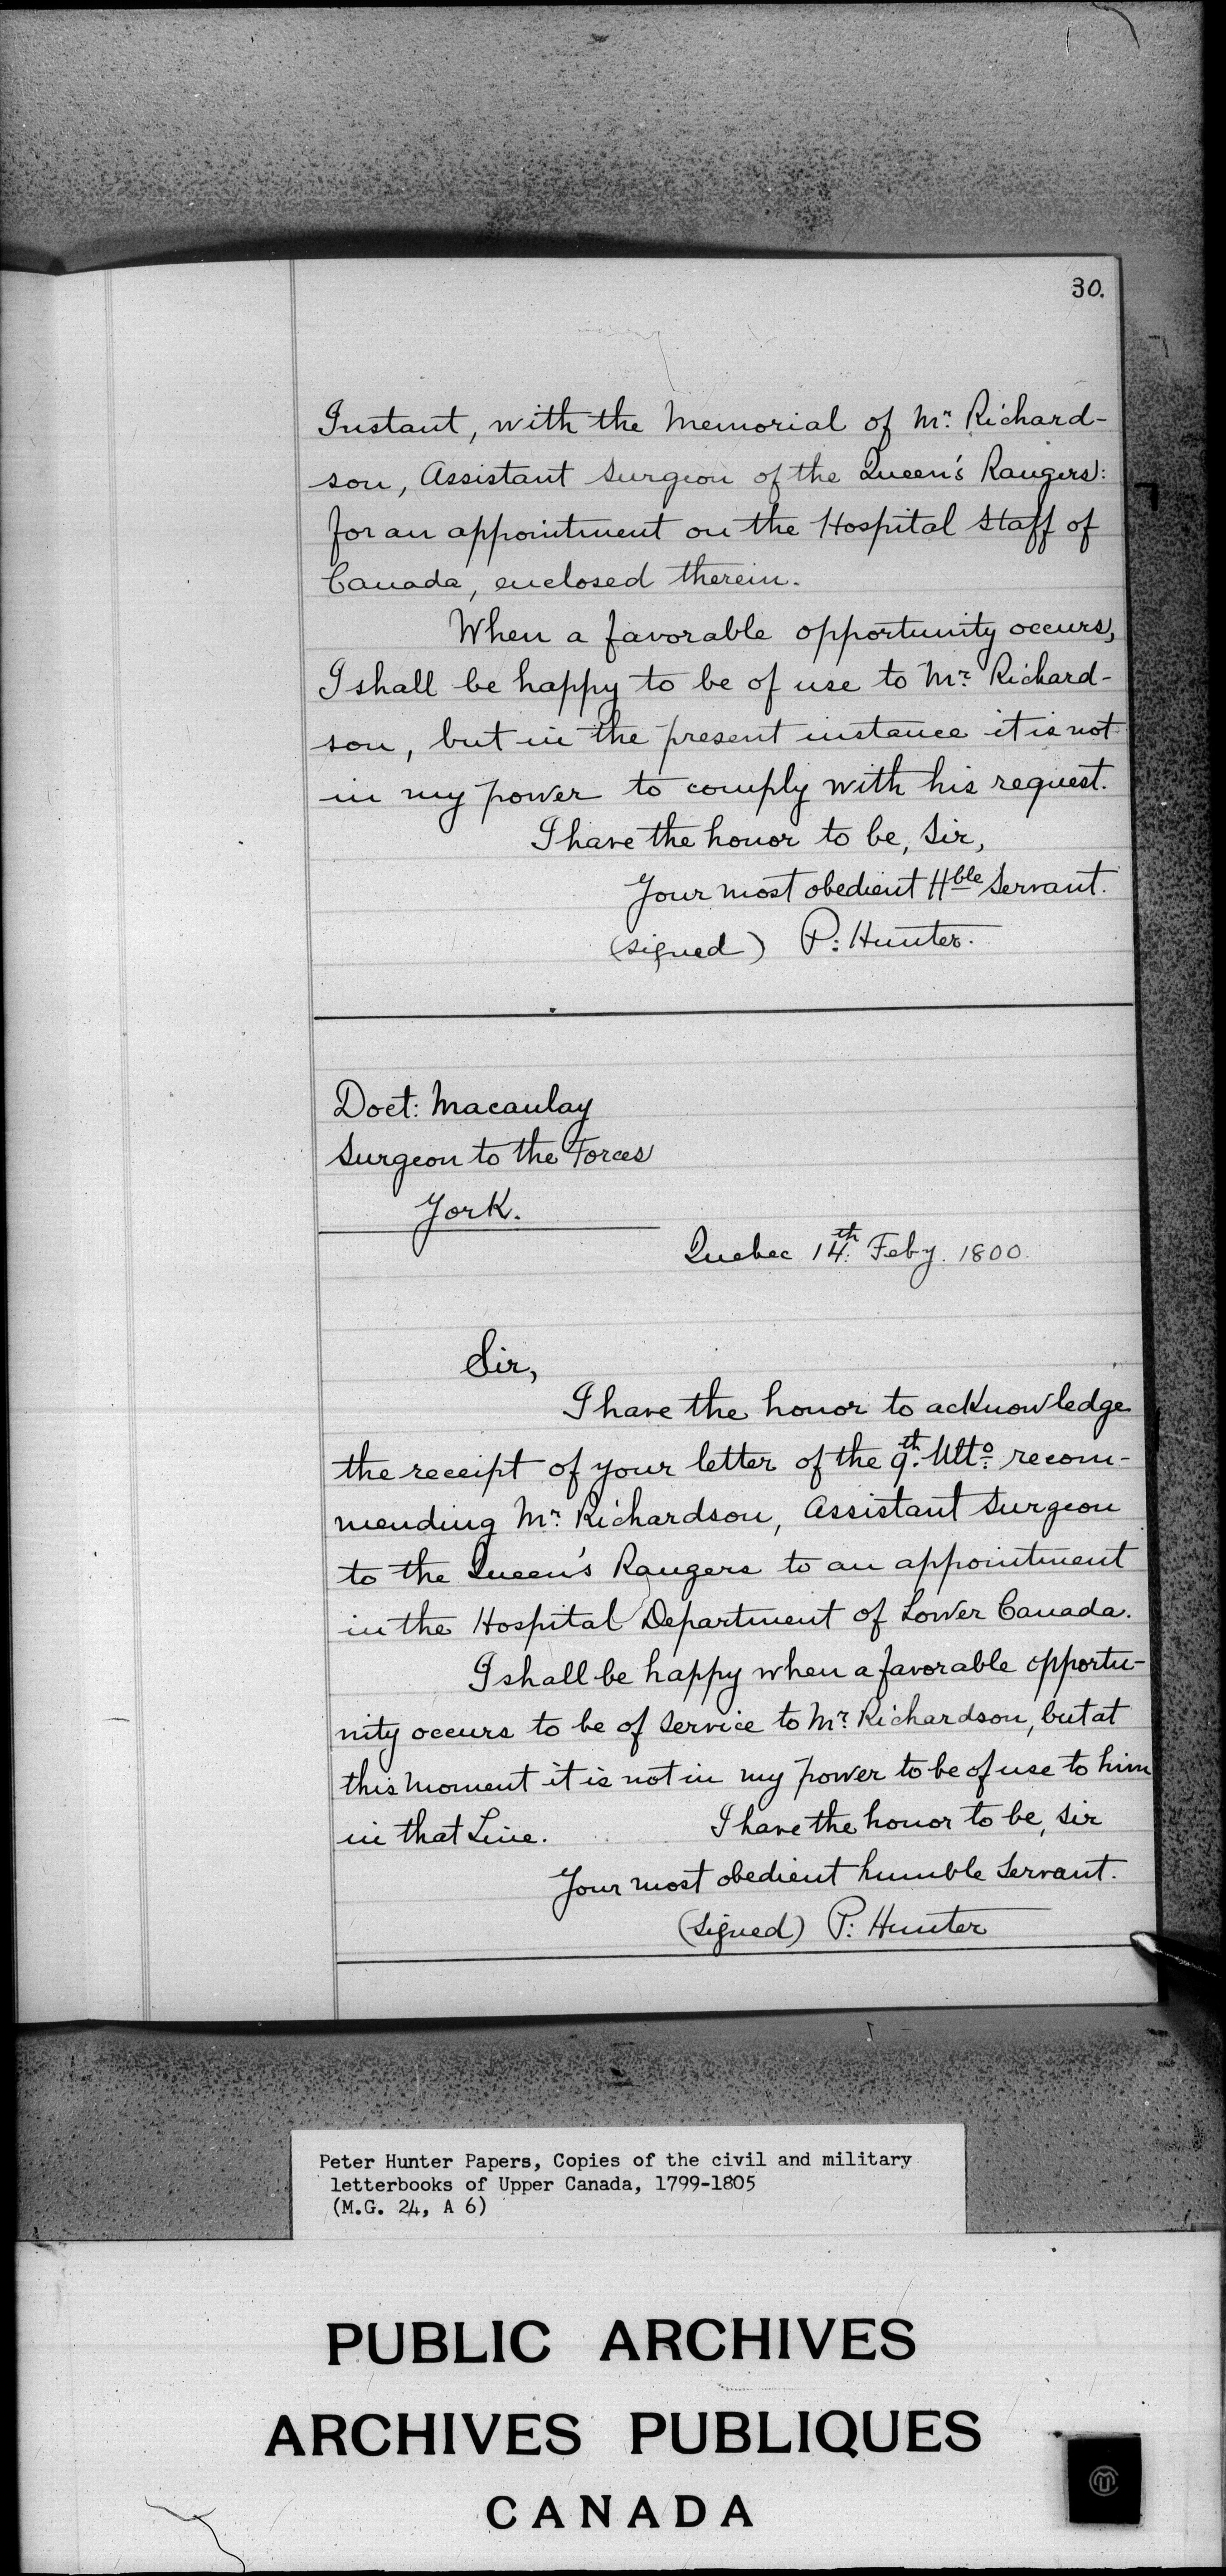 30.
Instant, with the Memorial of Mr. Richard-
son, Assistant Surgeon of the Queen's Rangers:
for an appointment on the Hospital Staff of
Canada, enclosed therein.
When a favorable opportunity occurs,
I shall be happy to be of use to Mr. Richard-
son, but in the present instance it is not
in my power to comply with his request.
I have the honor to be, Sir,
Your most obedient Hble Servant.
(signed) P: Hunter.
Doct: Macaulay
Surgeon to the Forces
York.
Quebec 14th Feby. 1800.
Sir,
I have the honor to acknowledge
the receipt of your letter of the 9th Ulto. recom-
mending Mr. Richardson, Assistant Surgeon
to the Queen's Rangers to an appointment
in the Hospital Department of Lower Canada.
I shall be happy when a favorable opportu-
nity occurs to be of Service to Mr. Richardson, but at
this Moment it is not in my power to be of use to him
in that Line. I have the honor to be, Sir
Your most obedient humble Servant.
(Signed) P: Hunter
Peter Hunter Papers, Copies of the civil and military
letterbooks of Upper Canada, 1799-1805
(M.G. 24, A 6)
PUBLIC ARCHIVES
ARCHIVES PUBLIQUES
CANADA